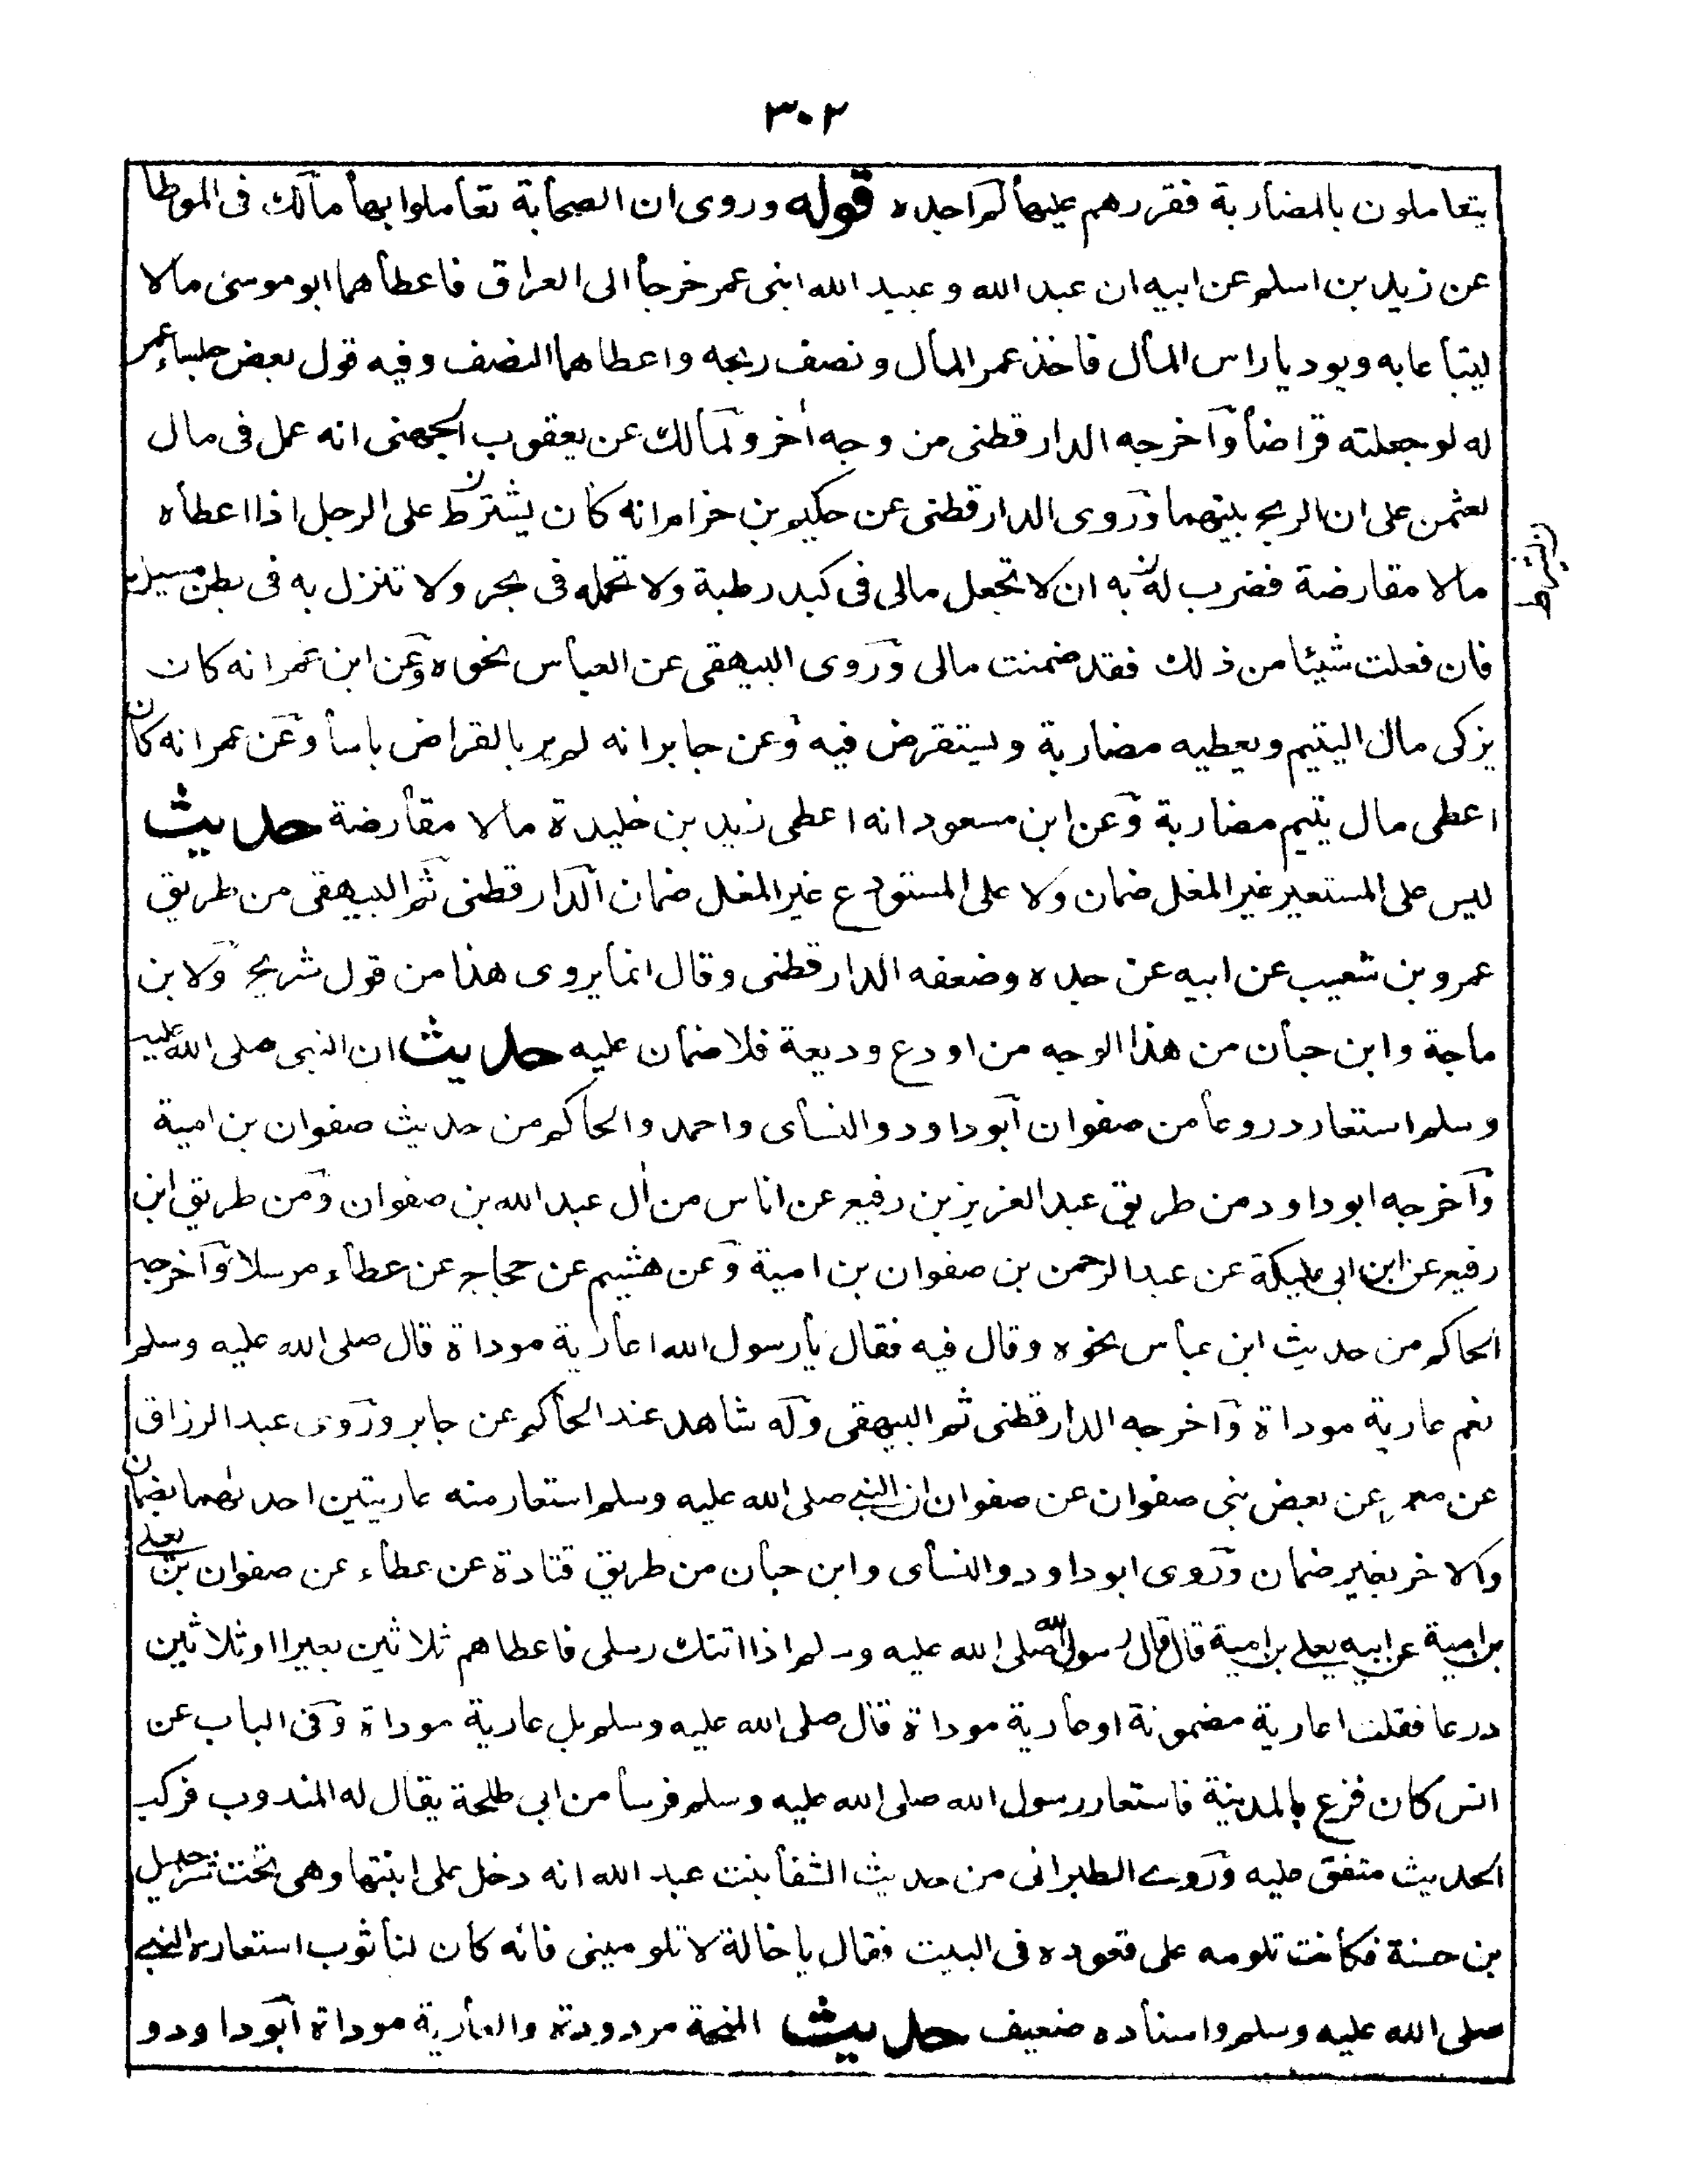 ٣٠٢
يتعاملون بالمضاربة فقررهم عليها لم اجده قوله وروى ان الصحابة تعاملوا بها مالك فى الموطا
عن زيد بن اسلم عن ابيه ان عبد الله و عبيد الله ابنى عمر خرجا الى العراق فاعطاهما ابو موسى مالا
ليتبا عا به ويود يا راس المال فاخذ عمر المال و نصف ربحه واعطاهما النصف وفيه قول بعض جلساء عمر
له لو جعلته قراضا وآخرجه الدارقطنى من وجه أخر ولمالك عن يعقوب الجهنى انه عمل فى مال
لعثمن على ان الربح بينهما وروى الدارقطنى عن حكيم بن حزام انه كان يشترط على الرجل اذا اعطاه
مالا مقارضة فضرب له به ان لا تجعل مالى فى كبد رطبة ولا تحمله فى بحر ولا تنزل به فى بطن مسيل
يشترط
فان فعلت شيئا من ذلك فقد ضمنت مالى وروى البيهقى عن العباس نحوه وعن ابن عمر انه كان
يزكى مال اليتيم ويعطيه مضاربة ويستقرض فيه وعن جابر انه لم ير بالقراض باسا وعن عمر انه كان
اعطى مال يتيم مضاربة وعن ابن مسعود انه اعطى زيد بن خليدة مالا مقارضة حديث
ليس على المستعير غير المغل ضمان ولا على المستودع غير المغل ضمان الدارقطنى ثم البيهقى من طريق
عمرو بن شعيب عن ابيه عن جده وضعفه الدارقطنى وقال انما يروى هذا من قول شريح ولابن
ماجة وابن حبان من هذا الوجه من اودع وديعة فلا ضمان عليه حديث ان النبى صلى الله عليه
وسلم استعار دروعا من صفوان آبو داود والنسائى واحمد والحاكم من حديث صفوان بن امية
وآخرجه ابو داود من طريق عبد العزيز بن رفيع عن اناس من أل عبد الله بن صفوان ومن طريق ابن
رفيع عن ابن ابى مليكة عن عبد الرحمن بن صفوان بن امية وعن هشيم عن حجاج عن عطاء مرسلا وآخرجه
الحاكم من حديث ابن عباس نحوه وقال فيه فقال يا رسول الله اعارية موداة قال صلى الله عليه وسلم
نعم عارية موداة وآخرجه الدارقطنى ثم البيهقى وله شاهد عند الحاكم عن جابر وروى عبد الرزاق
عن معمر عن بعض بنى صفوان عن صفوان ان النبى صلى الله عليه وسلم استعار منه عاريتين احدىهما بضمان
والاخر بغير ضمان وروى ابو داود والنسائى وابن حبان من طريق قتادة عن عطاء عن صفوان بن يعلى
بن امية عن ابيه يعلى بن امية قال قال رسول الله صلى الله عليه وسلم اذا اتتك رسلى فاعطاهم ثلاثين بعيرا او ثلاثين
درعا فقلت اعارية مضمونة او عارية موداة قال صلى الله عليه وسلم بل عارية موداة وفى الباب عن
انس كان فزع بالمدينة فاستعار رسول الله صلى الله عليه وسلم فرسا من ابى طلحة يقال له المندوب فركب
الحديث متفق عليه وروى الطبرانى من حديث الشفا بنت عبد الله انه دخل على ابنتها وهى تحت شرحبيل
بن حسنة فكانت تلومه على قعوده فى البيت فقال يا خالة لا تلومينى فانه كان لنا ثوب استعاره النبى
صلى الله عليه وسلم واسناده ضعيف حديث المنحة مردودة والعارية موداة آبو داود و